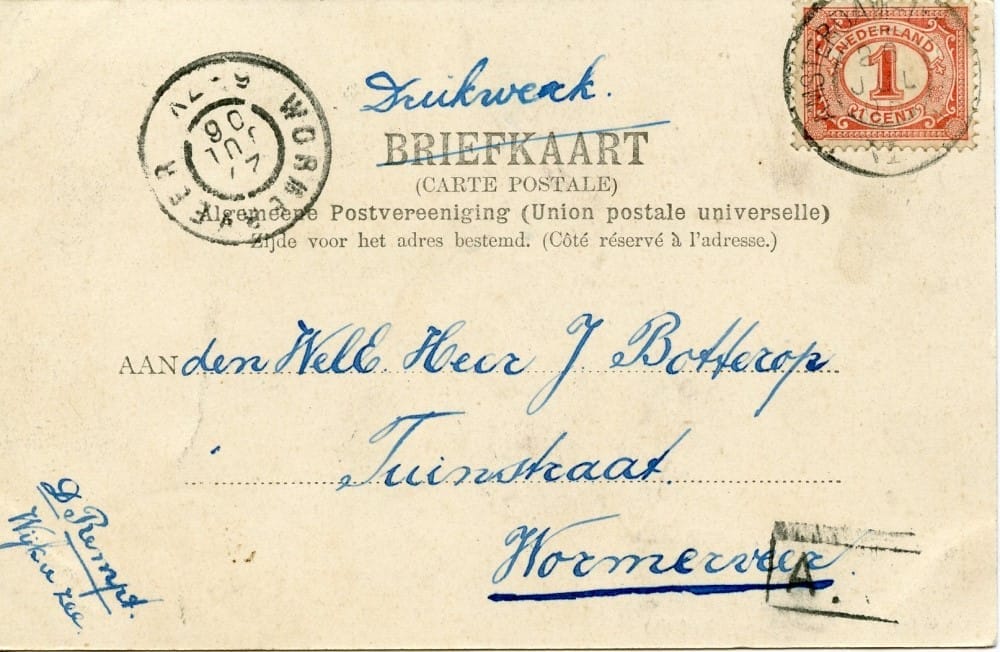 Drukwerk.
BRIEFKAART
(CARTE POSTALE)
Algemeene Postvereeniging (Union postale universelle)
Zijde voor het adres bestemd. (Côté réservé à l'adresse.)
NEDERLAND
1
CENT
WORMERVEER
JUL
AAN den WelE. Heer J Botterop
Tuinstraat.
Wormerveer
A.
D. Rempt.
Wijk a zee.